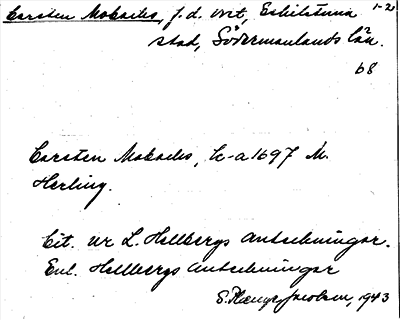 Carsten Mokacks, f.d. ort, Eskilstuna 1-2
stad, Södermanlands län.
68
Carsten Mokacks, k-a 1697 M.
Herling.
Cit. ur L. Hellbergs Anteckningar.
Enl. Hellbergs Anteckningar
1943